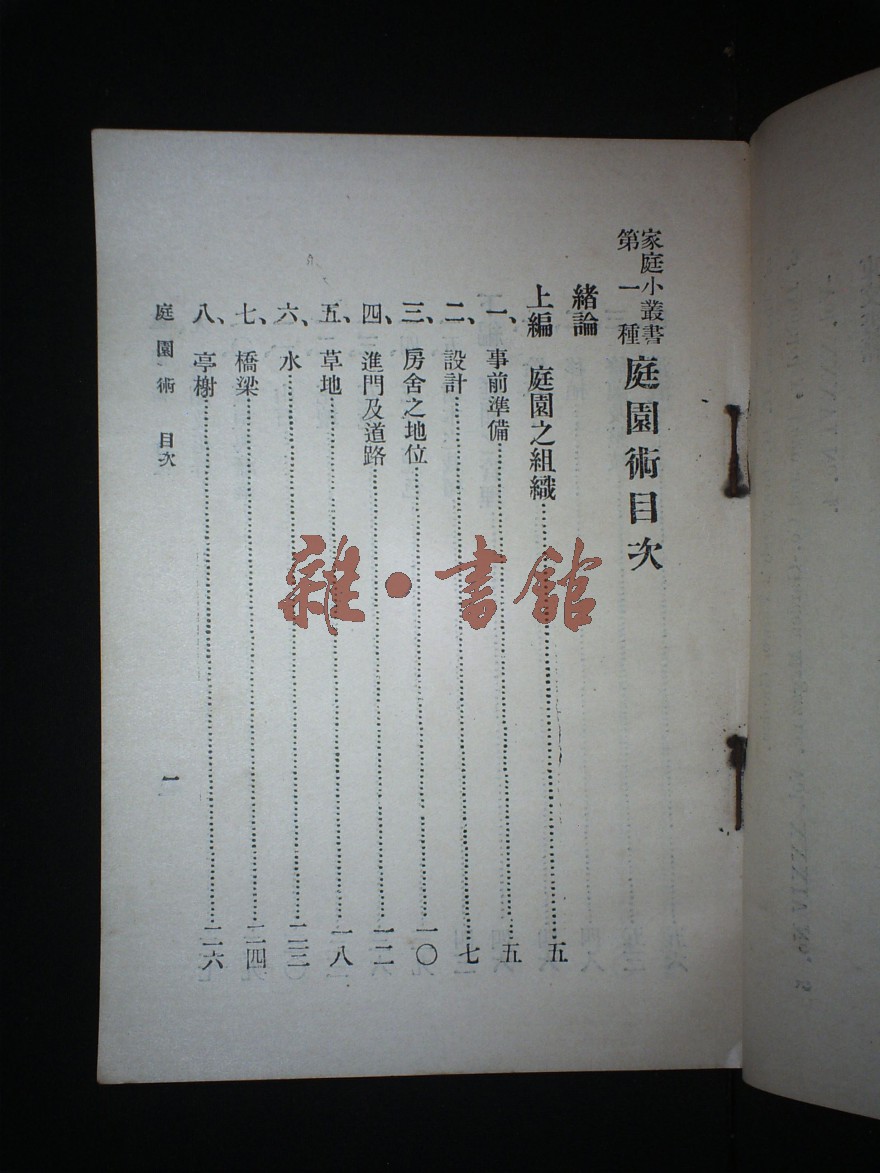 家庭小叢書
第一種
庭園術目次
緒論
上編 庭園之組織……五
一、事前準備……五
二、設計……七
三、房舍之地位……一〇
四、進門及道路……一二
五、草地……一八
六、水……二三
七、橋梁……二四
八、亭榭……二六
庭園術 目次
一
雜·書館